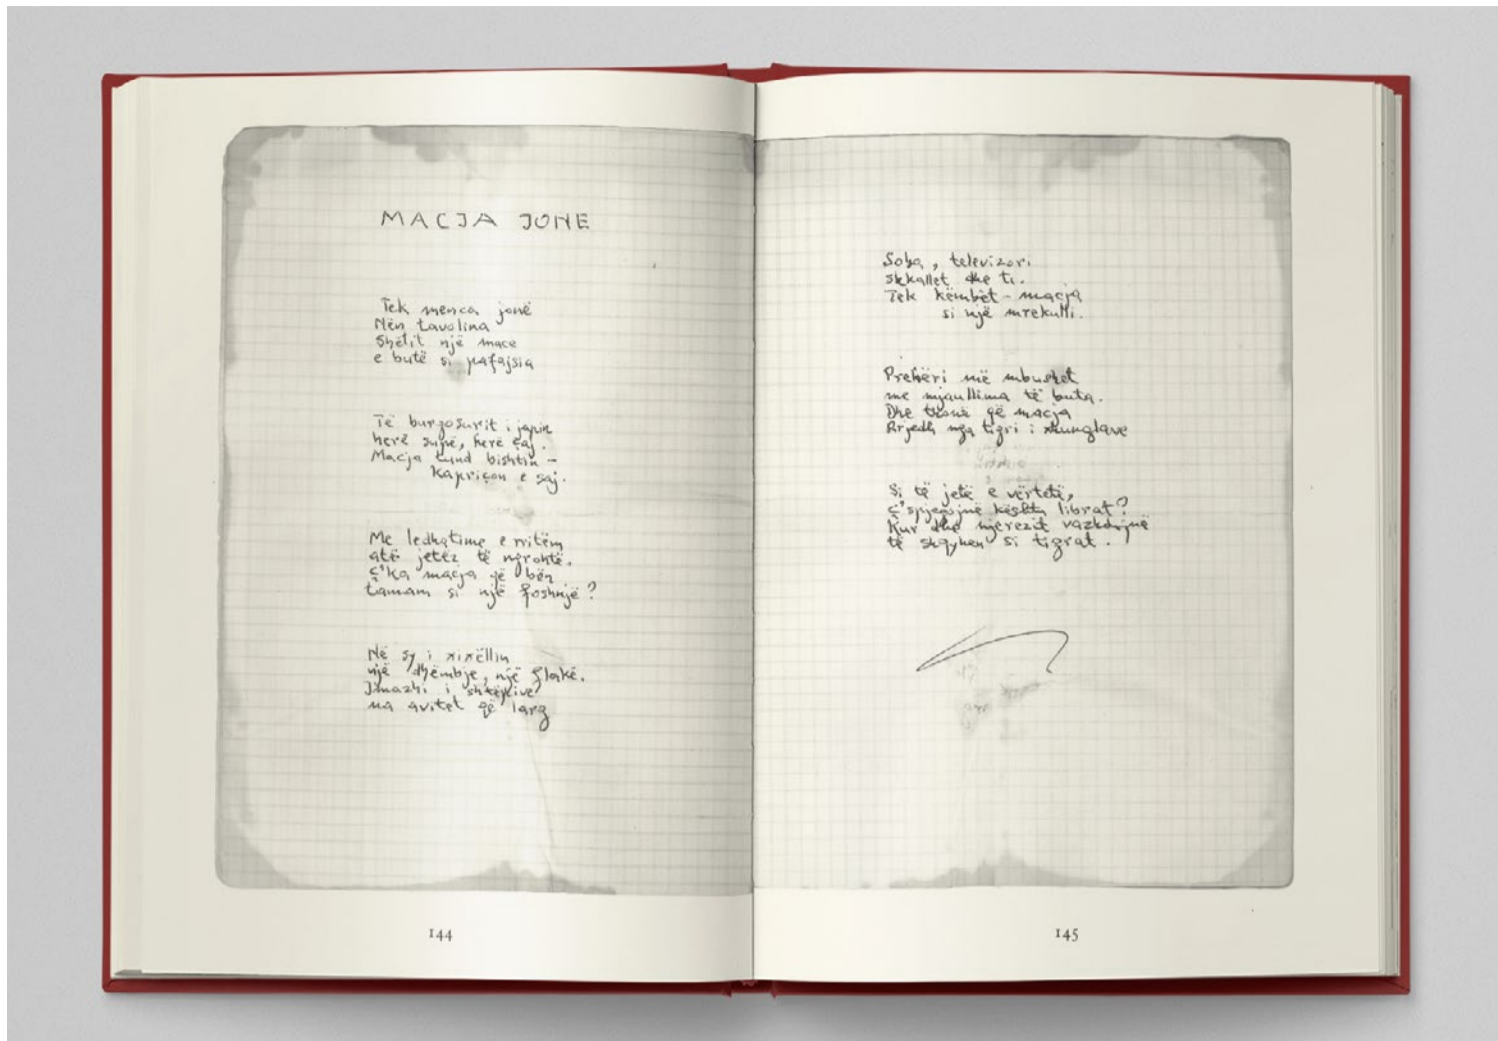 MACJA JONE
Tek menca jonë
Nën tavolina
Shëtit një mace
e butë si pafajsia
Të burgosurit i japin
herë supë, herë çaj.
Macja tund bishtin –
Kapriçon e saj.
Me ledhatime e rritëm
atë jetëz të ngrohtë.
Ç'ka macja që bën
tamam si një foshnjë?
Në sy i xixëllin
një dhëmbje, një flakë.
Imazhi i shtëpive
na avitet që larg
Soba, televizori
shkallet dhe ti.
Tek këmbët – macja
si një mrekulli.
Prehëri më mbushet
me mjaullima të buta.
Dhe thonë që macja
Rrjedh nga tigri i xhunglave
Si të jetë e vërtetë,
ç'spjegojnë kështu librat?
Kur dhe njerezit vazhdojnë
të shqyhen si tigrat.
144
145